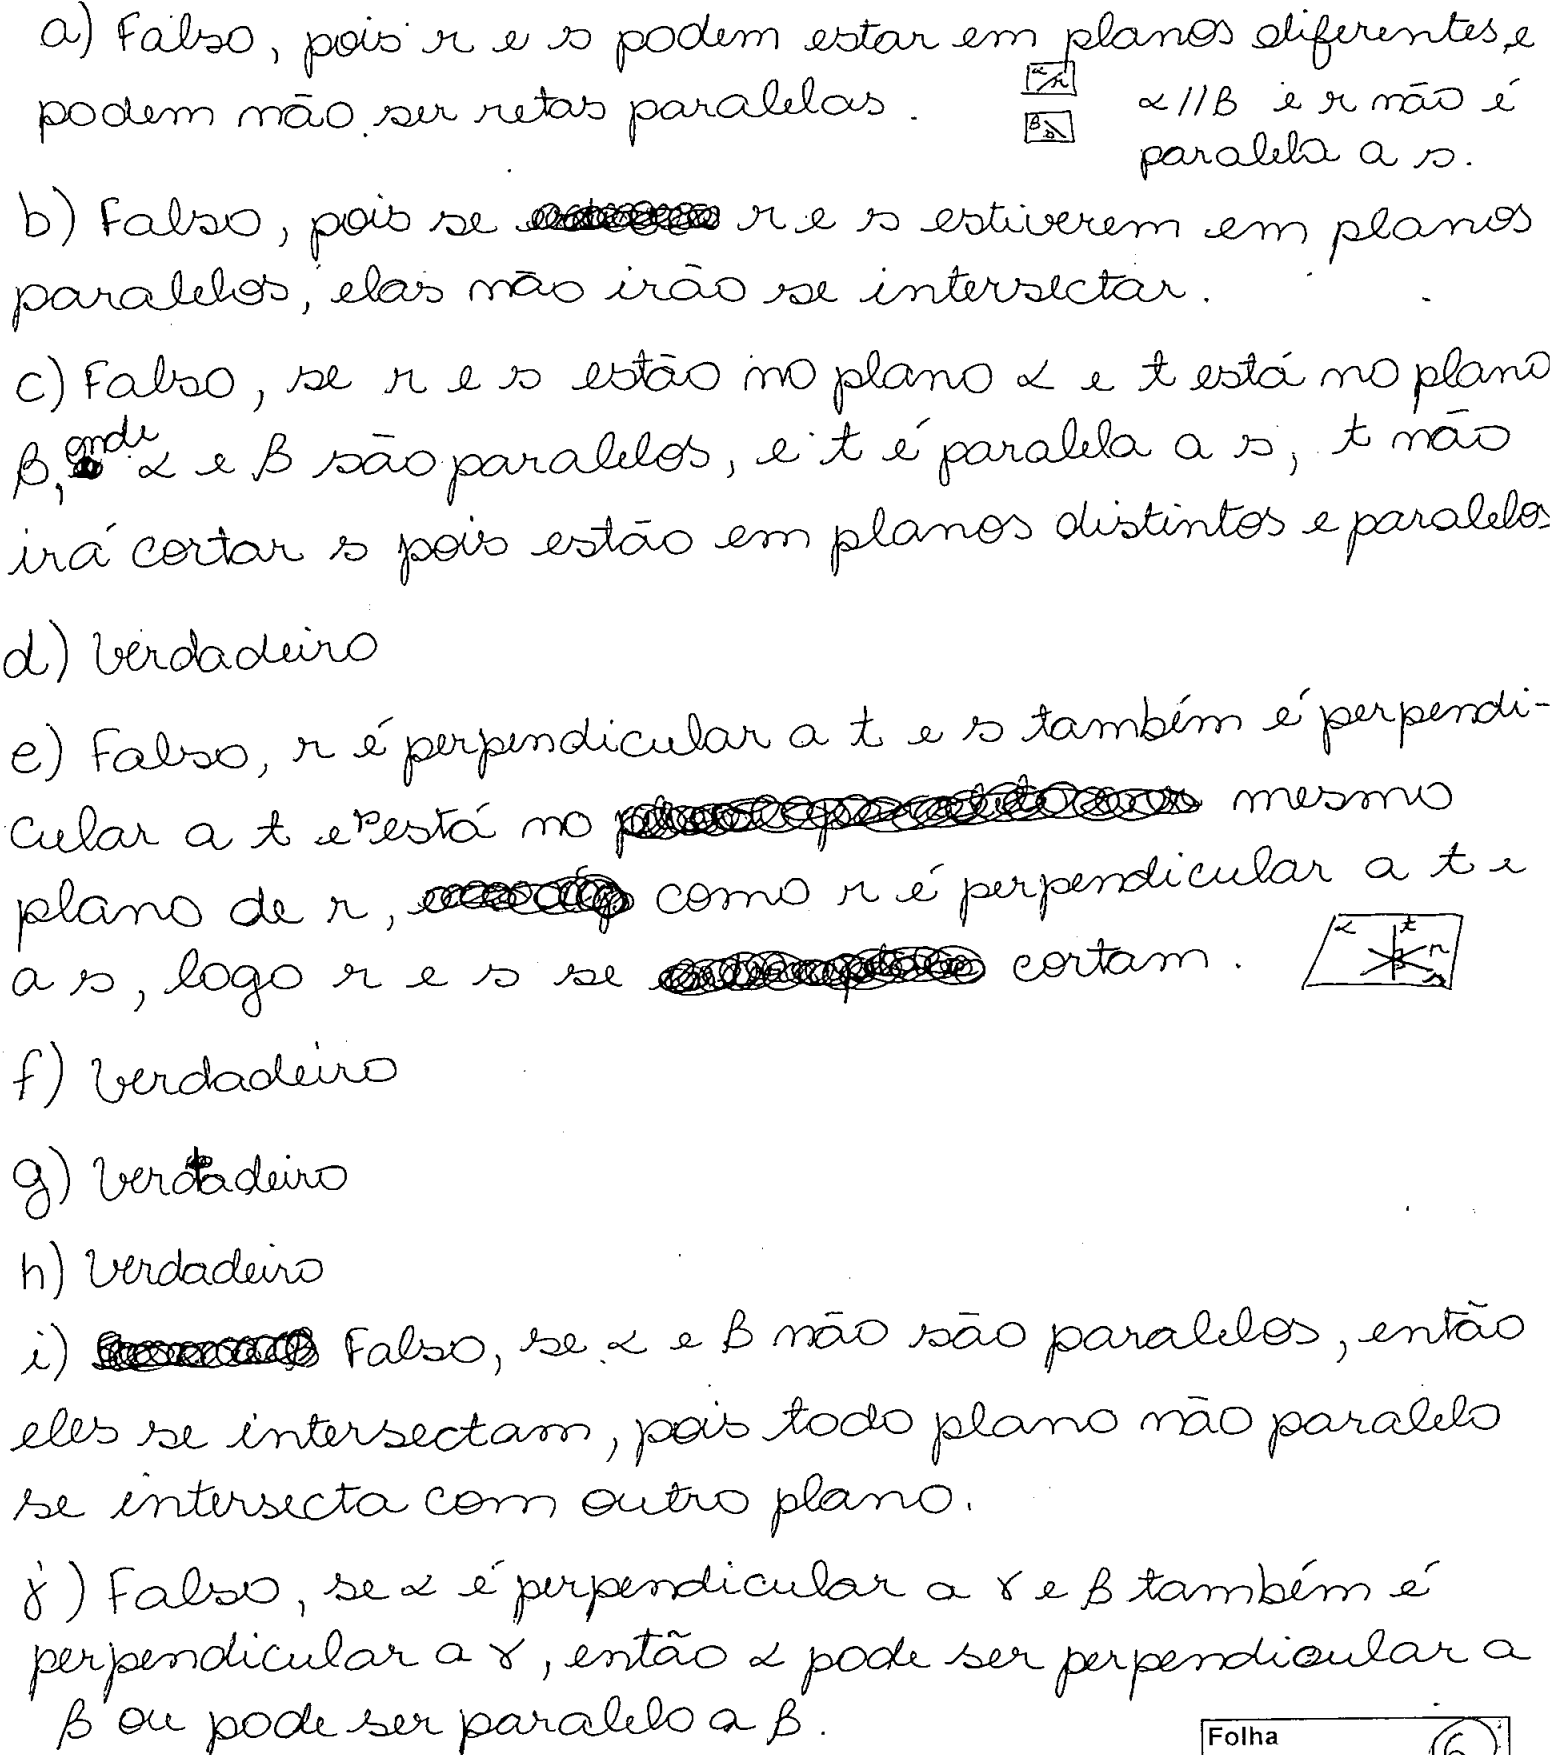 a) Falso, pois r e s podem estar em planos diferentes, e
podem não ser retas paralelas.
α r
β s
α//β e r não é
paralela a s.
b) Falso, pois se r e s estiverem em planos
paralelos, elas não irão se intersectar.
c) Falso, se r e s estão no plano α e t está no plano
β, onde α e β são paralelos, e t é paralela a s, t não
irá cortar s pois estão em planos distintos e paralelos
d) Verdadeiro
e) Falso, r é perpendicular a t e s também é perpendi-
cular a t e está no mesmo
plano de r, como r é perpendicular a t e
a s, logo r e s se cortam.
α t r s
f) Verdadeiro
g) Verdadeiro
h) Verdadeiro
i) Falso, se α e β não são paralelos, então
eles se intersectam, pois todo plano não paralelo
se intersecta com outro plano.
j) Falso, se α é perpendicular a γ e β também é
perpendicular a γ, então α pode ser perpendicular a
β ou pode ser paralelo a β.
Folha 6